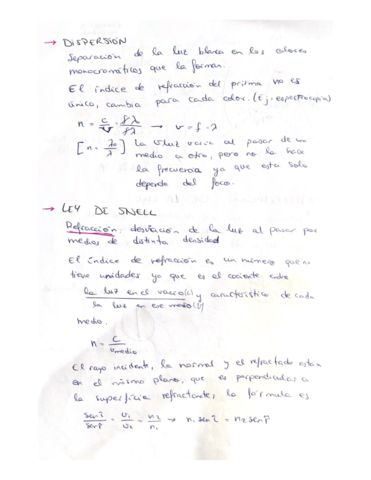 → DISPERSIÓN
Separación de la luz blanca en los colores
monocromáticos que la forman.
El índice de refracción del prisma no es
único, cambia para cada color. (Ej. espectroscopía)
n = c/v = fλ₀/fλ → v = f · λ
[n = λ₀/λ] la v luz varía al pasar de un
medio a otro, pero no lo hace
la frecuencia ya que esta solo
depende del foco.
→ LEY DE SNELL
Refracción: desviación de la luz al pasar por
medios de distinta densidad
El índice de refracción es un número que no
tiene unidades ya que es el cociente entre
la luz en el vacío (c) y característico de cada
la luz en ese medio (v)
medio.
n = c/v medio
El rayo incidente, la normal y el refractado están
en el mismo plano, que es perpendicular a
la superficie refractante, la fórmula es
sen î / sen r̂ = v₁/v₂ = n₂/n₁ → n₁ sen î = n₂ sen r̂